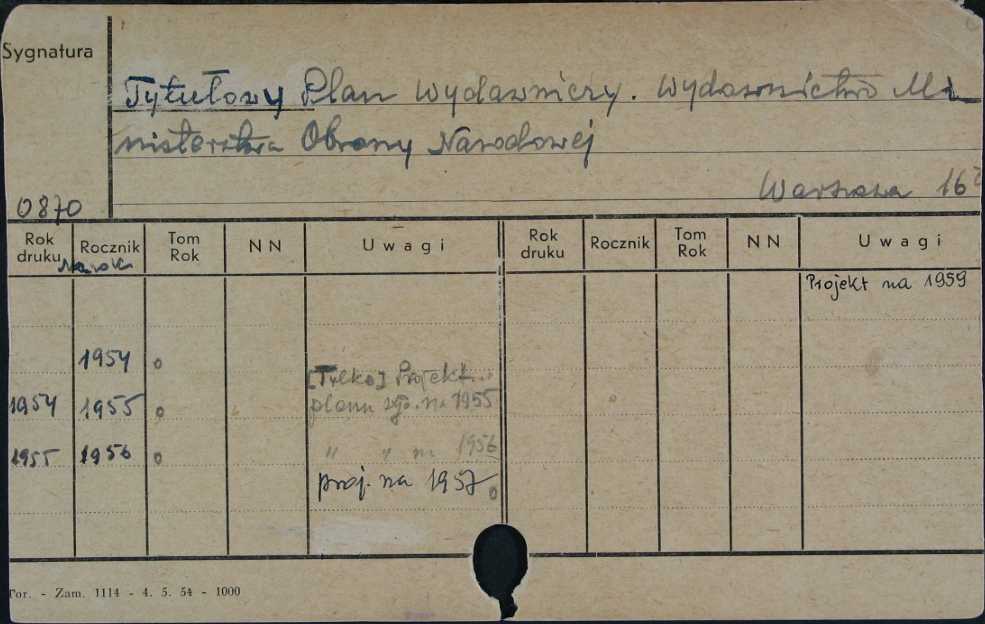 Sygnatura
Tytułowy Plan Wydawniczy. Wydawnictwo Mi
nisterstwa Obrony Narodowej
Warszawa 16
0870
Rok druku Rocznik Tom Rok NN Uwagi Rok druku Rocznik Tom Rok NN Uwagi
Na rok
Projekt na 1959
1954 o
[Tylko] Projekt
1954 1955 o planu wyd. na 1955
1955 1956 o " " na 1956
proj. na 1957 o
Por. - Zam. 1114 - 4. 5. 54 - 1000